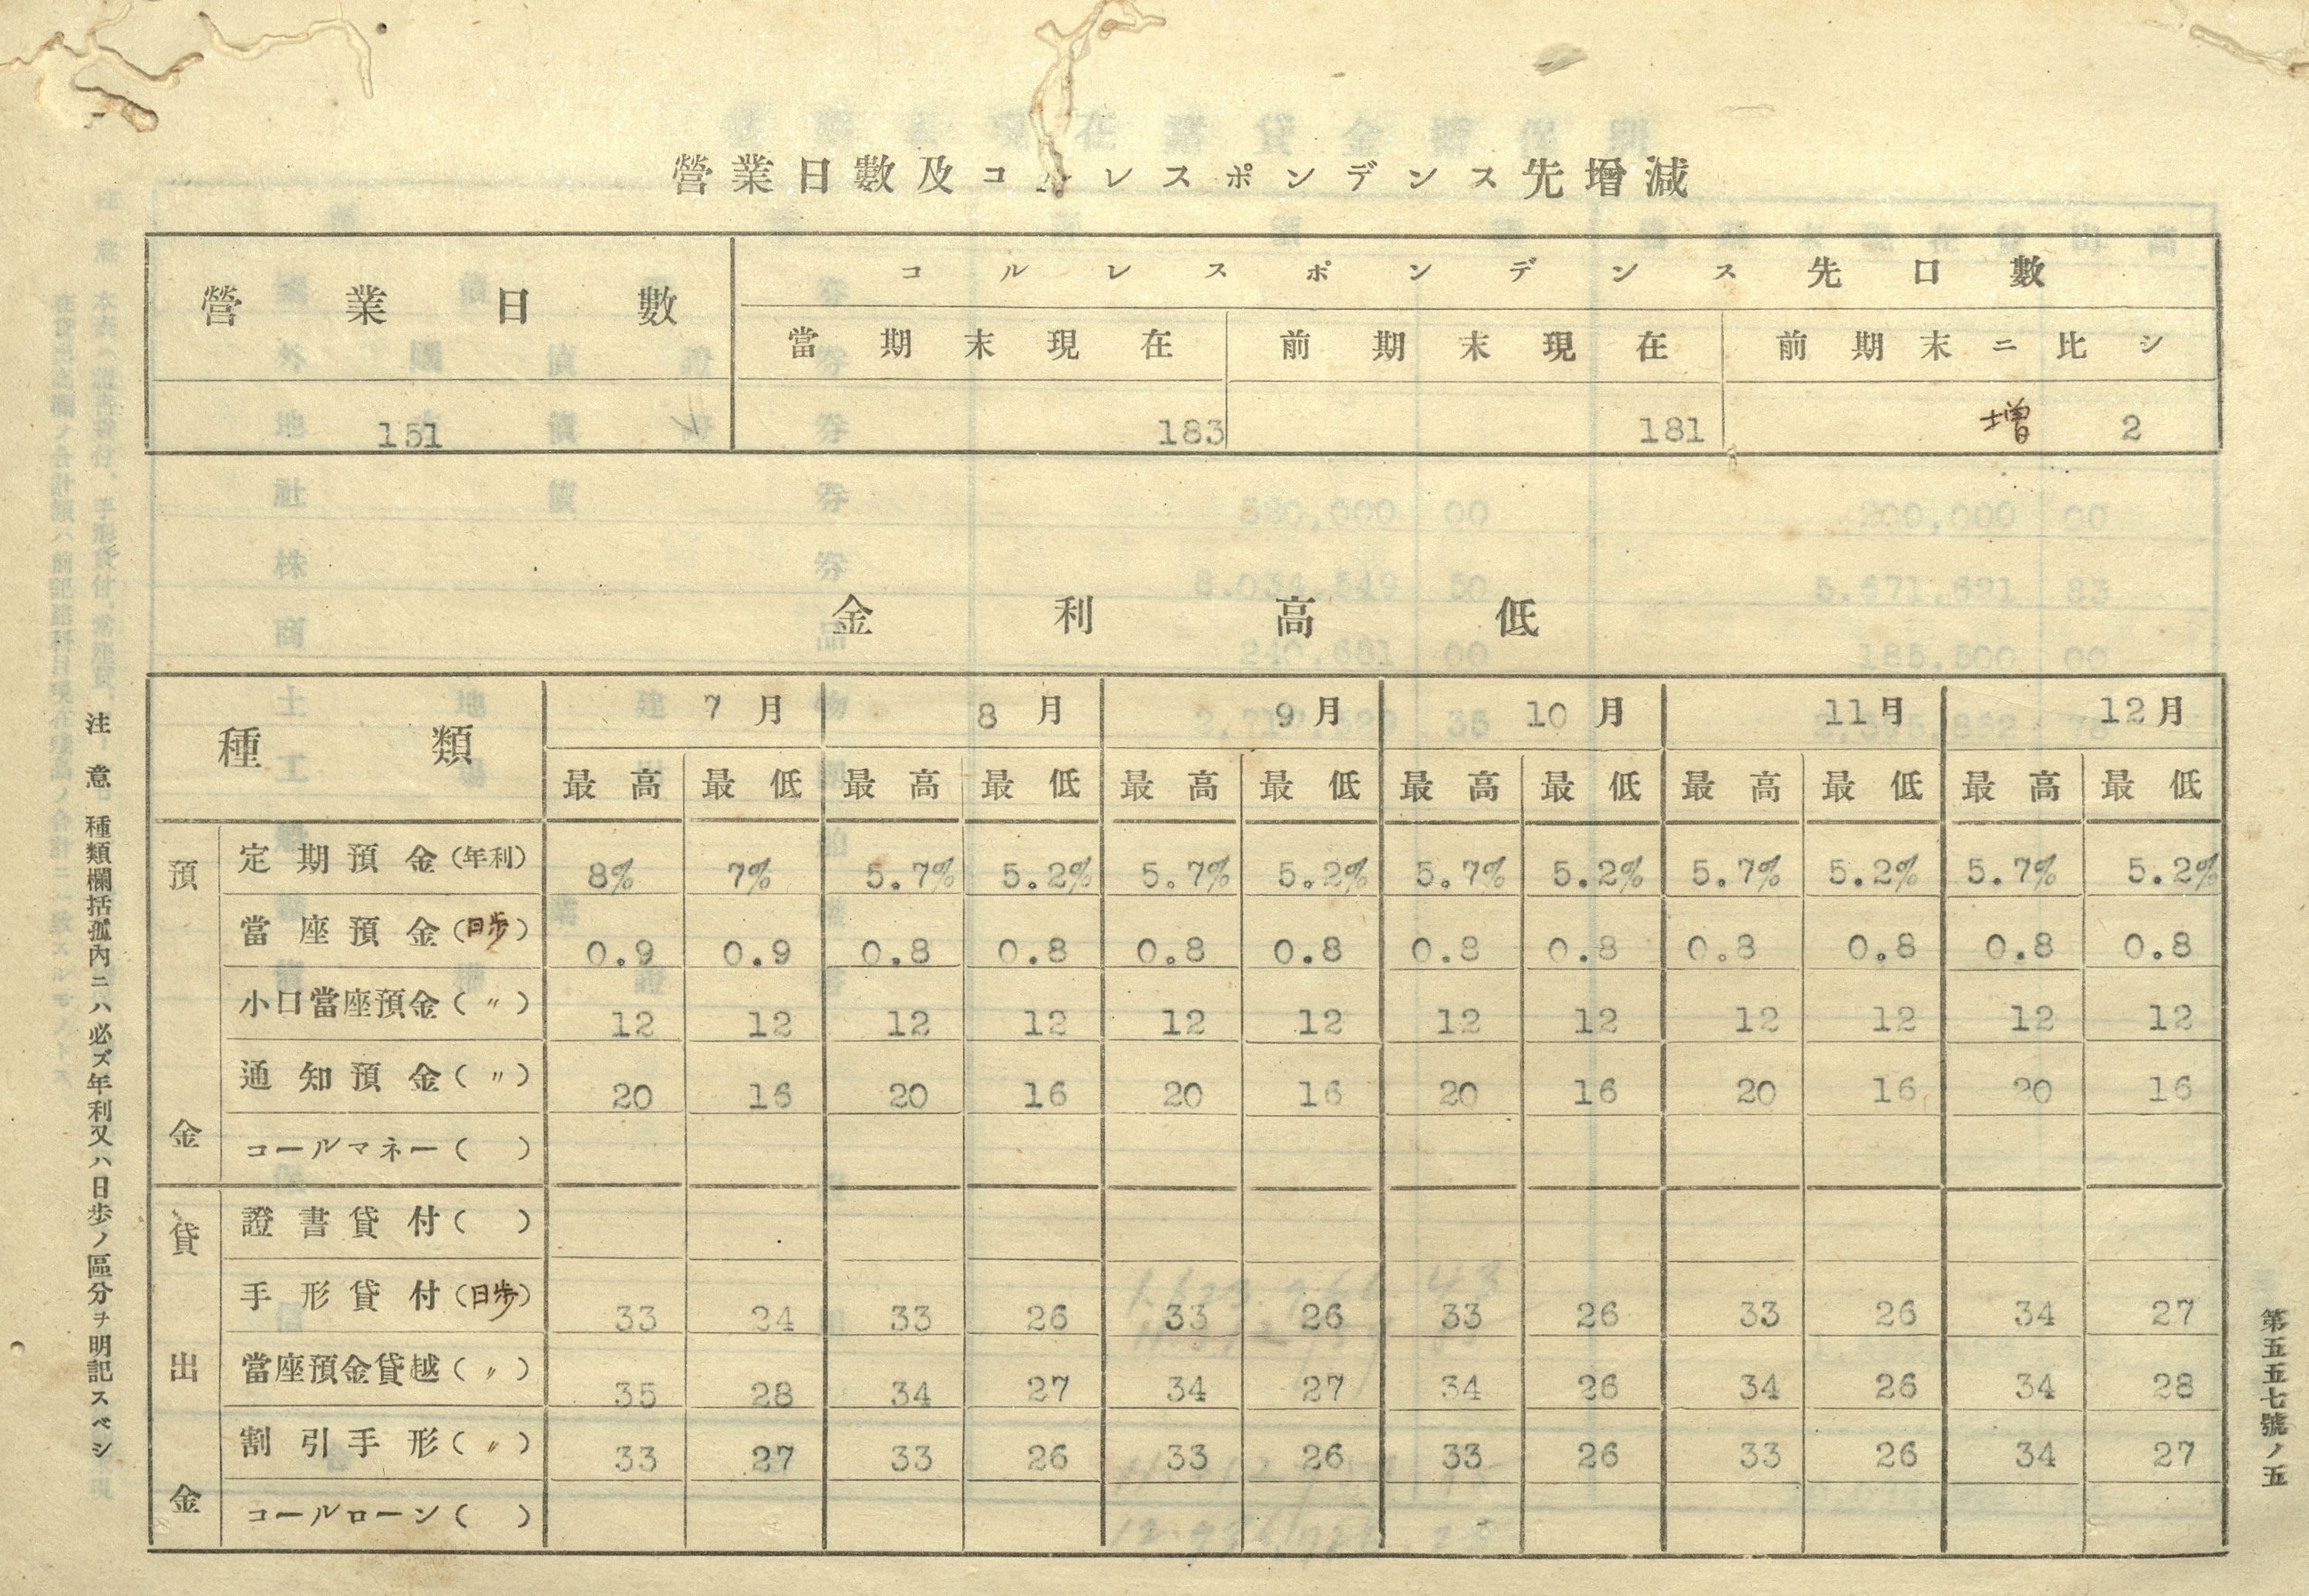 營業日數及コルレスポンデンス先增減
營業日數 コルレスポンデンス先口數
當期末現在 前期末現在 前期末ニ比シ
151 183 181 增 2
金利高低
種類 7月 8月 9月 10月 11月 12月
最高 最低 最高 最低 最高 最低 最高 最低 最高 最低 最高 最低
預金
定期預金(年利) 8% 7% 5.7% 5.2% 5.7% 5.2% 5.7% 5.2% 5.7% 5.2% 5.7% 5.2%
當座預金(日歩) 0.9 0.9 0.8 0.8 0.8 0.8 0.8 0.8 0.8 0.8 0.8 0.8
小口當座預金(〃) 12 12 12 12 12 12 12 12 12 12 12 12
通知預金(〃) 20 16 20 16 20 16 20 16 20 16 20 16
コールマネー( )
貸出金
證書貸付( )
手形貸付(日歩) 33 24 33 26 33 26 33 26 33 26 34 27
當座預金貸越(〃) 35 28 34 27 34 27 34 26 34 26 34 28
割引手形(〃) 33 27 33 26 33 26 33 26 33 26 34 27
コールローン( )
注意 種類欄括孤內ニハ必ズ年利又ハ日歩ノ區分ヲ明記スベシ
第五五七號ノ五